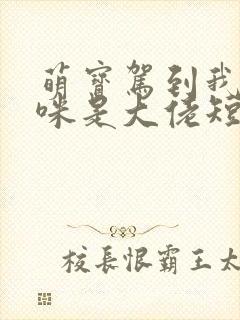 萌寶駕到我
咪是大佬短
校長恨霸王太